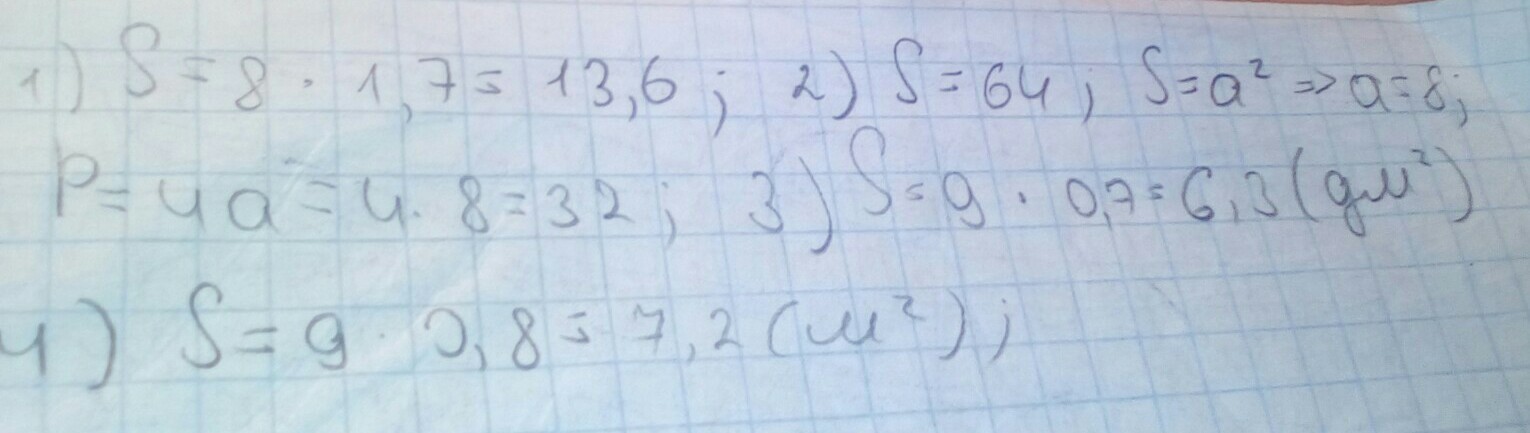 1) S = 8 · 1,7 = 13,6; 2) S = 64; S = a² => a = 8;
P = 4a = 4 · 8 = 32; 3) S = 9 · 0,7 = 6,3 (дм²)
4) S = 9 · 0,8 = 7,2 (м²);